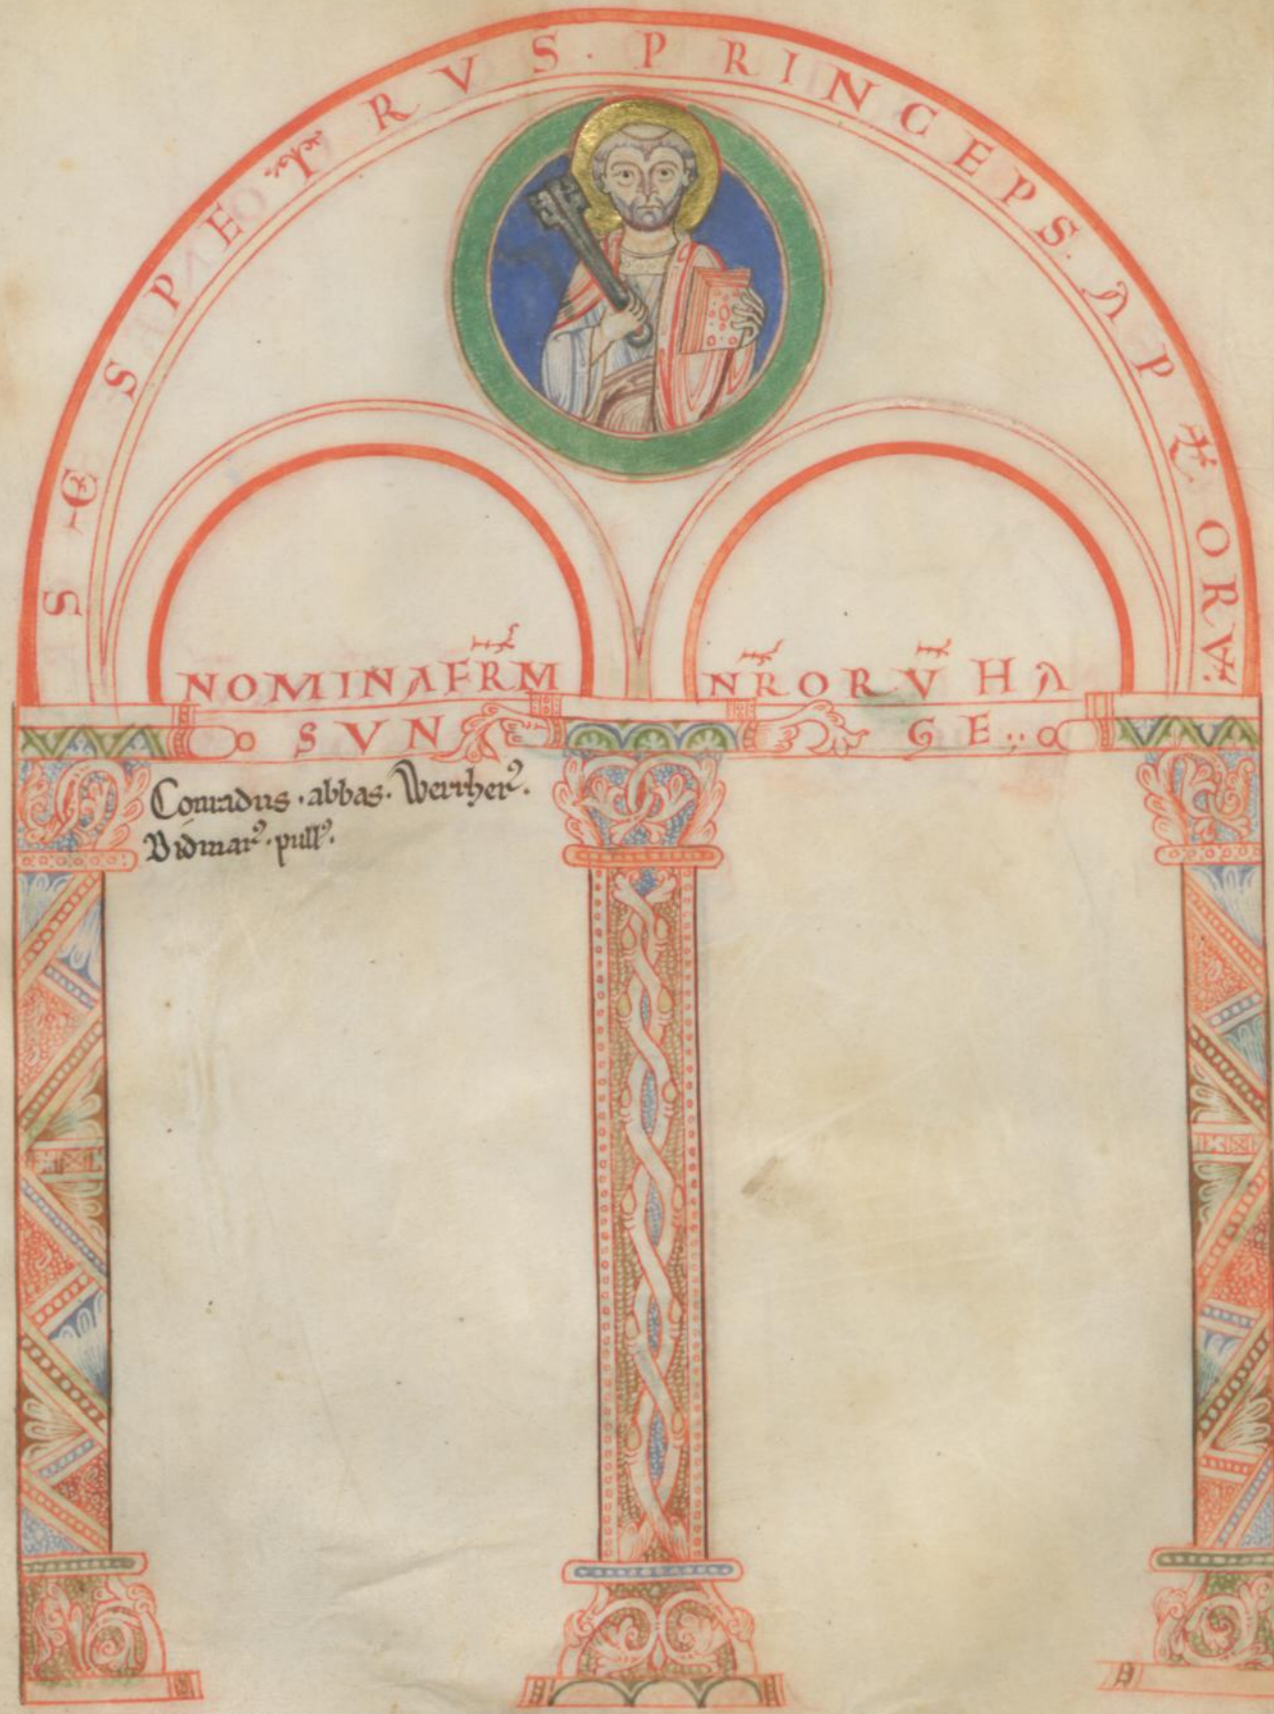 S·C̅S PAETRVS. PRINCEPS. AP̅ORV̅:
NOMINA FR̅M NR̅ORV̅ HA
SVN GE:·
Conradus · abbas · Wernherꝰ.
Vidmarꝰ · pullꝰ.